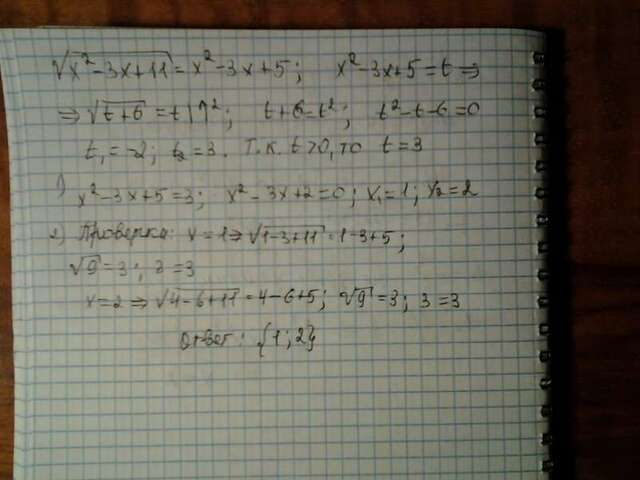 √(x²-3x+11) = x²-3x+5; x²-3x+5=t ⇒
⇒ √(t+6) = t |↑²; t+6=t²; t²-t-6=0
t₁=-2; t₂=3. Т.к. t>0, то t=3
1) x²-3x+5=3; x²-3x+2=0; x₁=1; x₂=2
2) Проверка: x=1⇒√(1-3+11)=1-3+5;
√9=3; 3=3
x=2 ⇒ √(4-6+11)=4-6+5; √9=3; 3=3
Ответ: {1; 2}